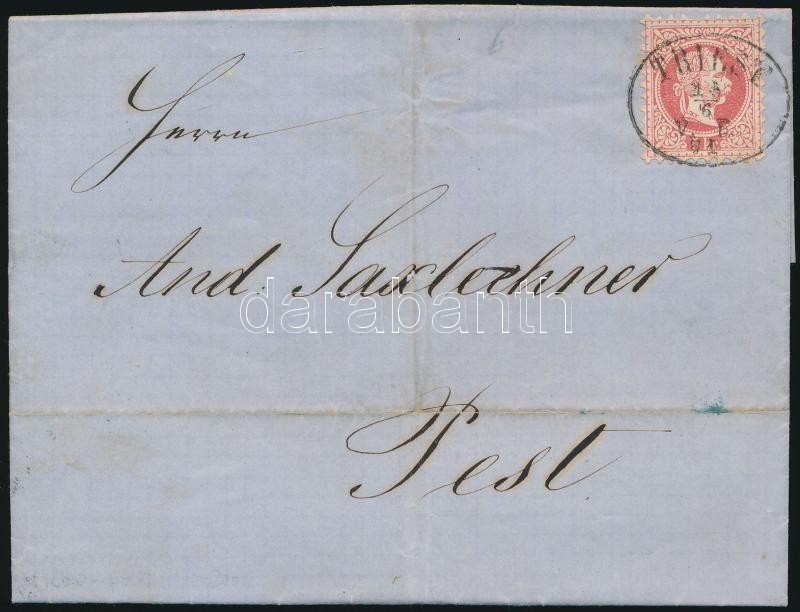 TRIEST
6
71
Herrn
And. Saxlechner
darabanth
Pest